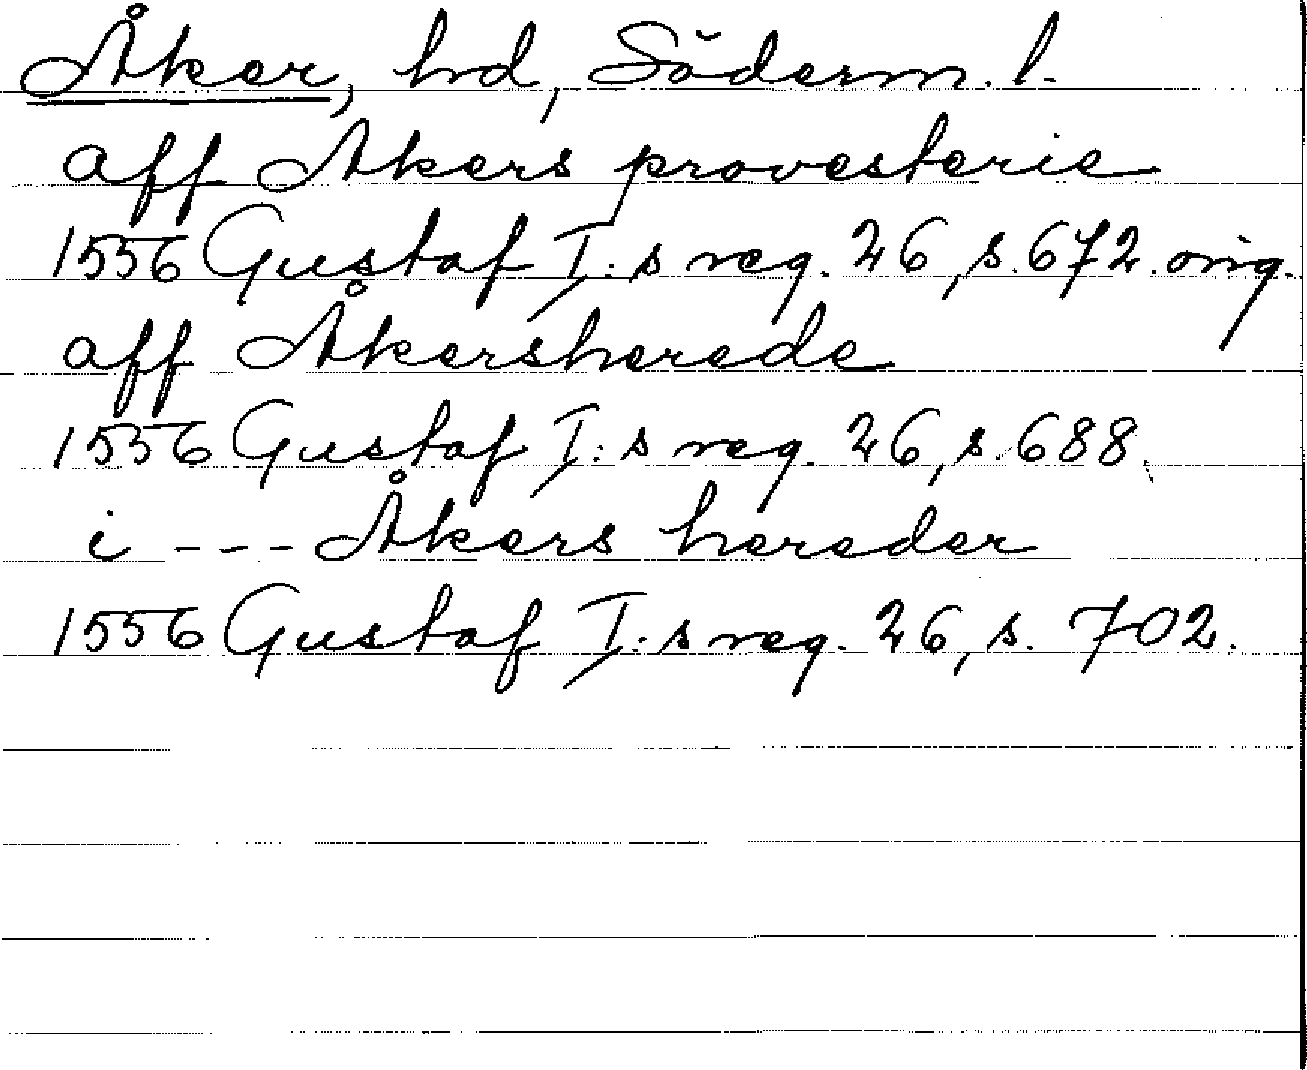 Åker, hd, Söderm. l.
aff Akers provesterie
1556 Gustaf I:s reg. 26, s. 672. orig.
aff Åkersherede
1556 Gustaf I:s reg. 26, s. 688.
i --- Åkers hereder
1556 Gustaf I:s reg. 26, s. 702.